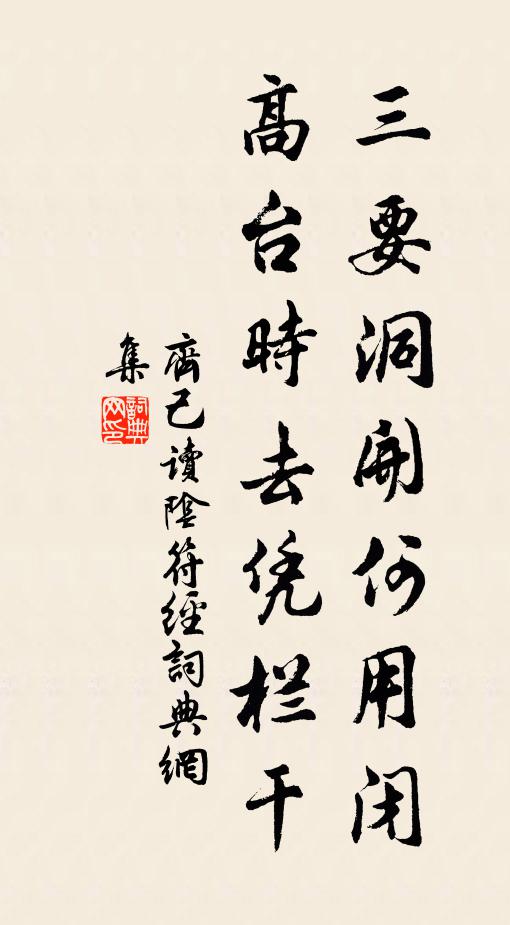 三要洞開何用闭
高台時去凭栏干
齊己讀陰符經詞典網
集
詞典
网印